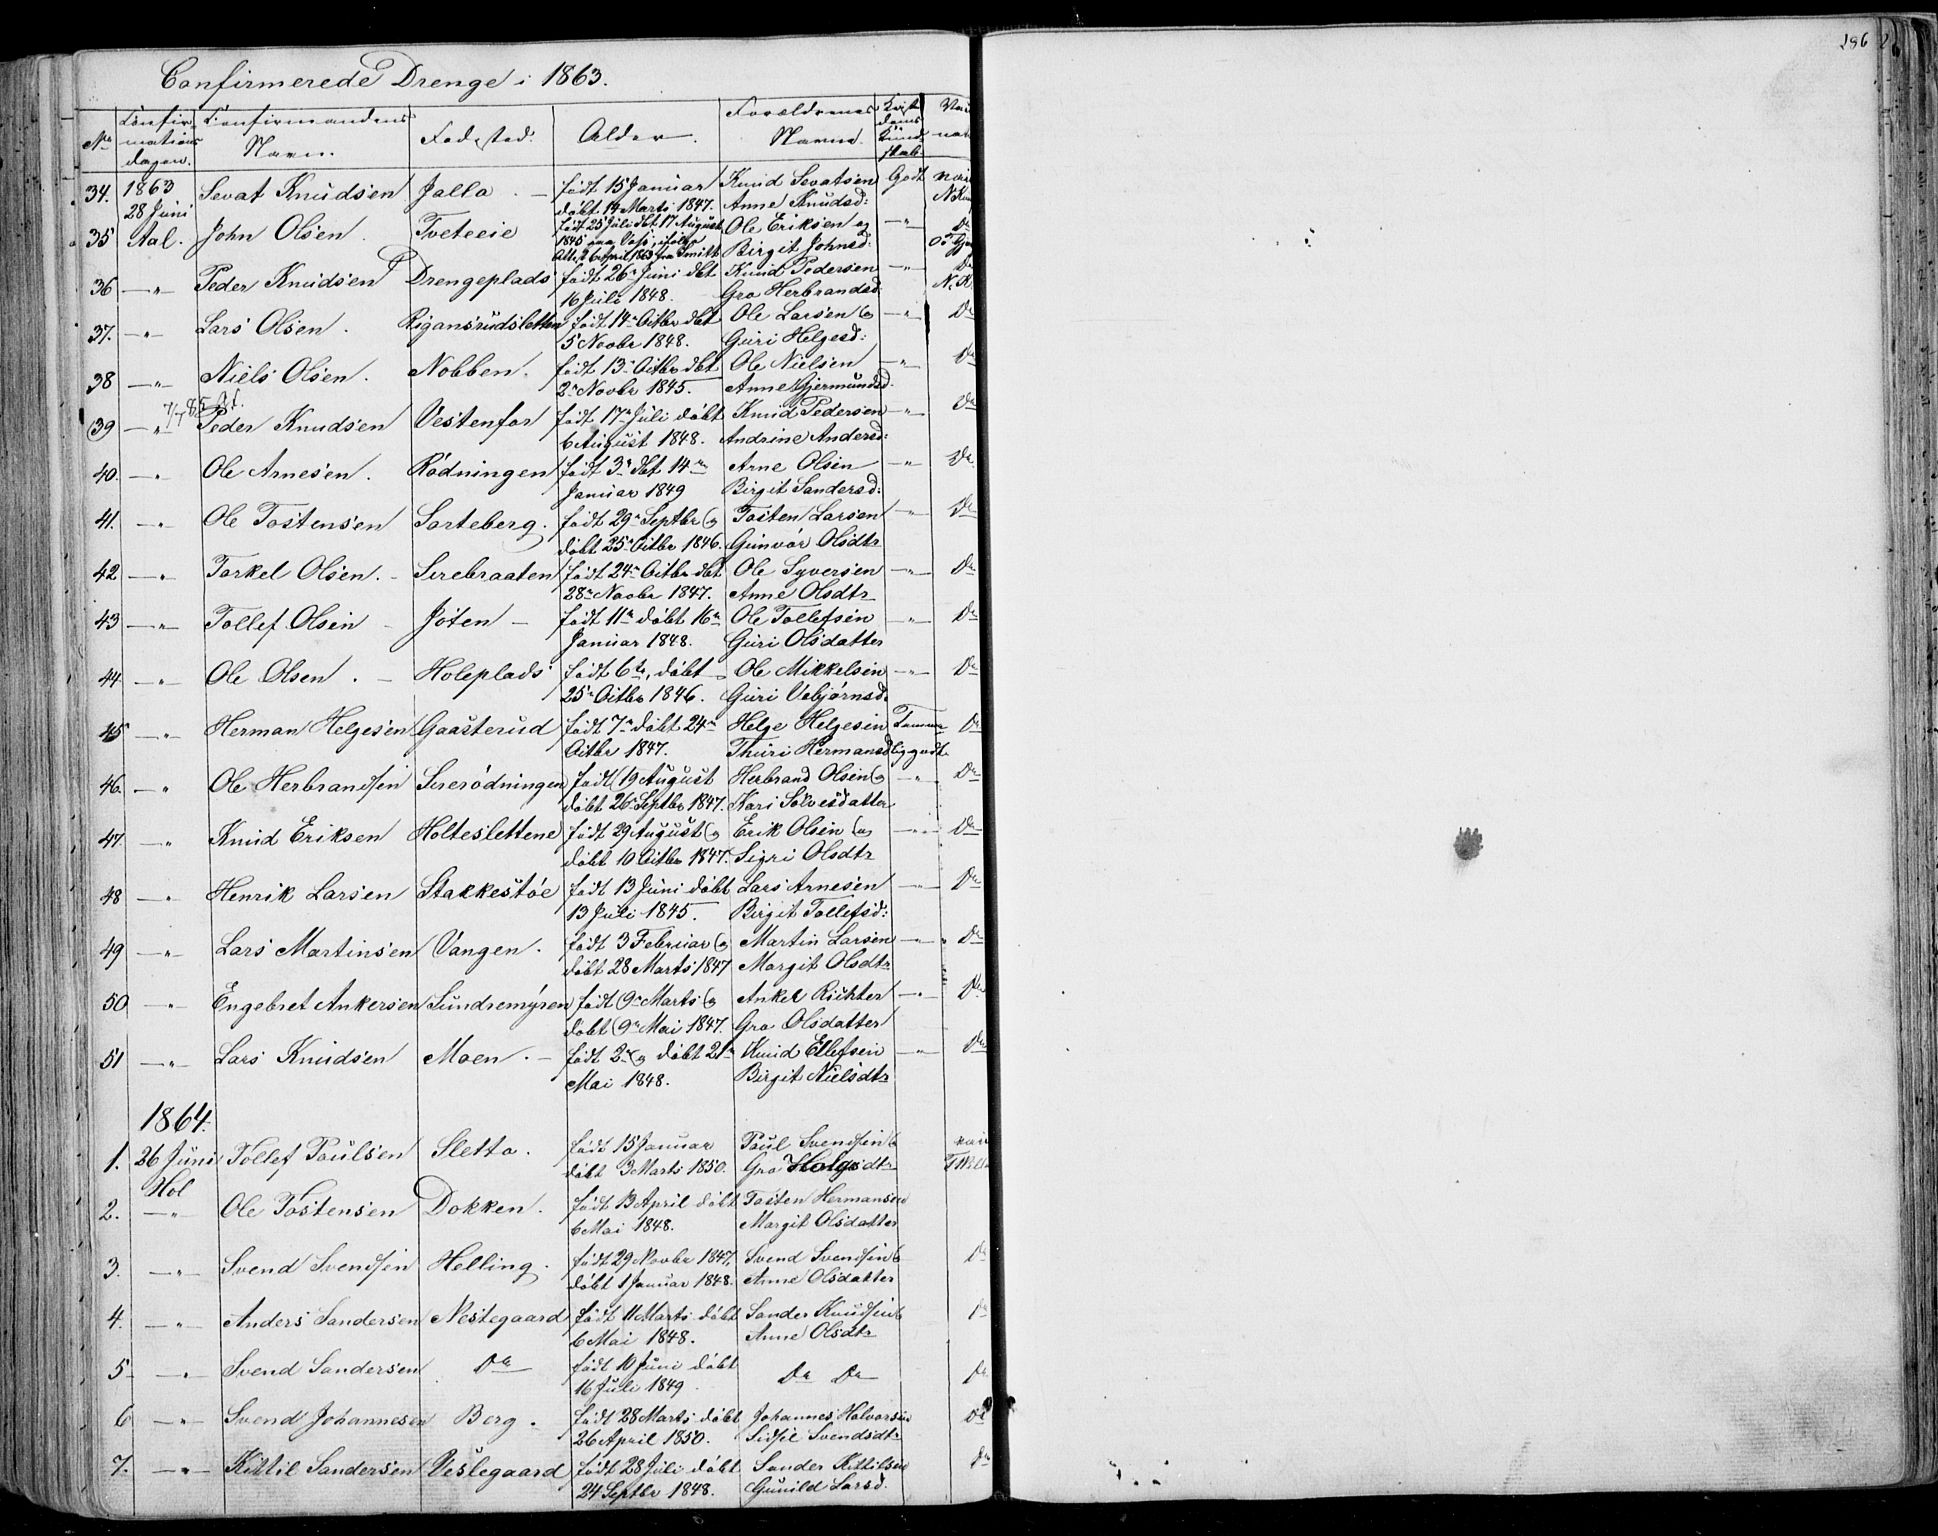 286
Confirmerede Drenge i 1863.
No Confirmations dagen. Confirmandens Navn. Fødested. Alder. Forældrenes Navne. Kristdoms Kundskab.
34. 1863 28 Juni Sevat Knudsen Jallo født 15 Januar Knud Sevatsen Godt
døbt 14 Marts 1847. Anne Knudsd:
35 Aal. John Olsen. Tveteeie født 25 Juli dbt 17 August Ole Eriksen og -"-
1845 paa Voss, ifølge Birgit Johnsd:
Att. 26 April 1863 fra Smitt
36 -"- Peder Knudsen Drengeplads født 26 Juni dbt Knud Pedersen -"-
16 Juli 1848. Gro Herbrandsd:
37. -"- Lars Olsen. Rigansrudsletten født 14 Octbr dbt Ole Larsen og -"- Do
5 Novbr 1848. Guri Helgesd:
38 -"- Niels Olsen. Nobben. født 13 Octbr dbt Ole Nielsen -"- Do
2 Novbr 1845. Anne Gjermundsd.
39 -"- Peder Knudsen Vestenfor født 17 Juli døbt Knud Pedersen -"- Do
6 August 1848. Andrine Andersd:
40. -"- Ole Arnesen. Rødningen født 3 dbt 14 Arne Olsen -"- Do
Januar 1849 Birgit Sandersd:
41. -"- Ole Tostensen Sorteberg. født 29 Septbr og Tosten Larsen -"- Do
døbt 25 Octbr 1846. Gunvor Olsdtr
42 -"- Torkel Olsen. Sirebraaten født 24 Octbr dbt Ole Syversen -"- Do
28 Novbr 1847. Anne Olsdtr
43 -"- Tollef Olsen Jøten født 11 døbt 16 Ole Tollefsen -"- Do
Januar 1848. Guri Olsdatter
44 -"- Ole Olsen. Holeplads født 6te, døbt Ole Mikkelsen -"- Do
25 Octbr 1846. Guri Vebjørnsd.
45 -"- Herman Helgesen Gaasterud født 7 døbt 24 Helge Helgesen Temmelig godt Do
Octbr 1847. Thuri Hermansd
46. -"- Ole Herbrandsen Sirerødningen født 19 August Herbrand Olsen og -"- Do
døbt 26 Septbr 1847. Kari Solvesdatter
47. -"- Knud Eriksen Holteslettene født 29 August og Erik Olsen og -"- Do
døbt 10 Octbr 1847. Sigri Olsdtr
48 -"- Henrik Larsen Stakkestøe født 13 Juni døbt Lars Arnesen -"- Do
13 Juli 1845. Birgit Tollefsd:
49 -"- Lars Martinsen Vangen. født 3 Februar og Martin Larsen -"- Do
døbt 28 Marts 1847 Margit Olsdtr
50 -"- Engebret Ankersen Sundremyren født 9 Marts og Anker Richter -"- Do
døbt 9 Mai 1847. Gro Olsdatter
51 -"- Lars Knudsen Moen. født 2 og døbt 21 Knud Ellefsen -"- Do
Mai 1848. Birgit Nielsdtr
1864.
1. 26 Juni Hol Tollef Paulsen Sletto. født 15 Januar Paul Svendsen
døbt 3 Marts 1850. Gro Helgesdtr
2. -"- Ole Tostensen Dokken. født 13 April døbt Tosten Hermansen
6 Mai 1848. Margit Olsdatter
3. -"- Svend Svendsen Helling. født 29 Novbr 1847, Svend Svendsen Do
døbt 1 Januar 1848. Anne Olsdatter
4. -"- Anders Sandersen Nestegaard født 11 Marts døbt Sander Knudsen Do
6 Mai 1848. Anne Olsdtr
5 -"- Svend Sandersen Do født 10 Juni døbt Do Do Do
16 Juli 1849.
6 -"- Svend Johannesen Berg. født 28 Marts døbt Johannes Halvorsen Do
26 April 1850. Sidsel Svendsdtr
7. -"- Kittil Sandersen Vestegaard født 28 Juli døbt Sander Kittilsen Do
24 Septbr 1848. Gunild Larsd.